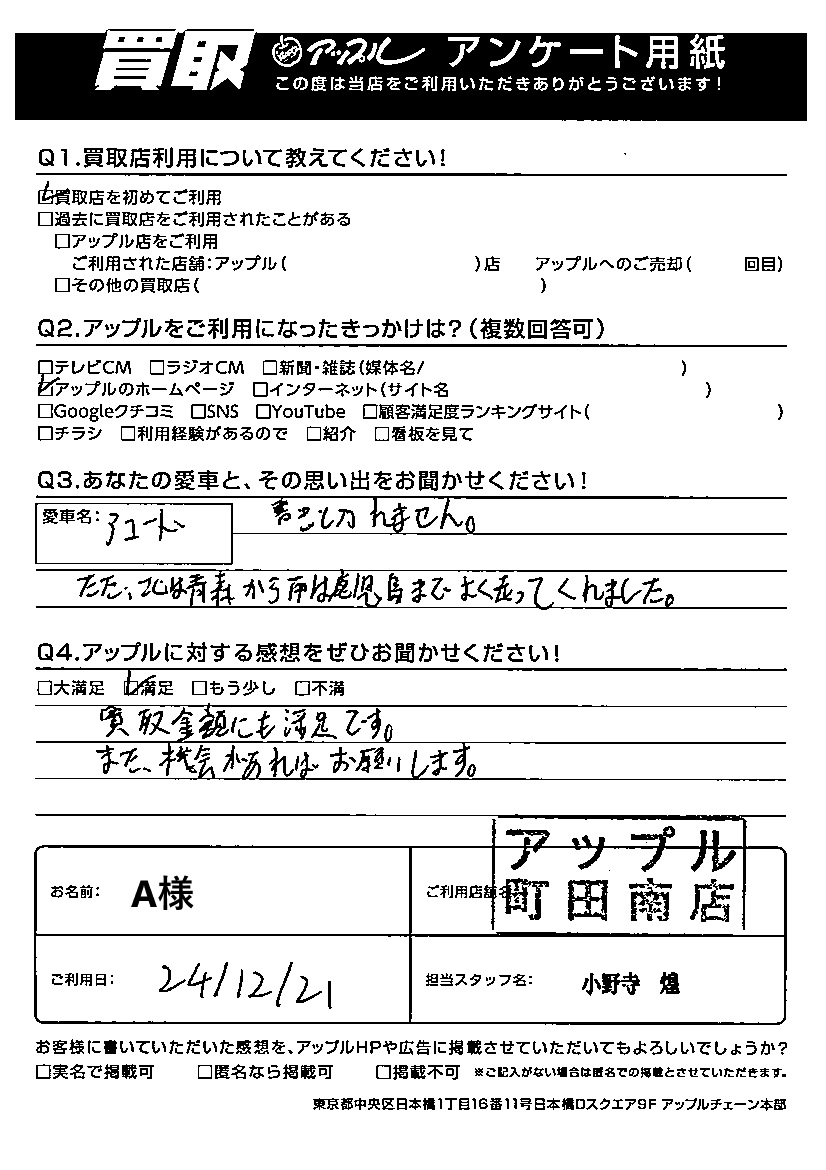 買取 アップル アンケート用紙
この度は当店をご利用いただきありがとうございます!
Q1.買取店利用について教えてください!
☑買取店を初めてご利用
□過去に買取店をご利用されたことがある
□アップル店をご利用
ご利用された店舗:アップル( )店 アップルへのご売却( 回目)
□その他の買取店( )
Q2.アップルをご利用になったきっかけは?(複数回答可)
□テレビCM □ラジオCM □新聞・雑誌(媒体名/ )
☑アップルのホームページ □インターネット(サイト名 )
□Googleクチコミ □SNS □YouTube □顧客満足度ランキングサイト( )
□チラシ □利用経験があるので □紹介 □看板を見て
Q3.あなたの愛車と、その思い出をお聞かせください!
愛車名: アコード 書き切れません。
ただ、北は青森から南は鹿児島までよく走ってくれました。
Q4.アップルに対する感想をぜひお聞かせください!
□大満足 ☑満足 □もう少し □不満
買取金額にも満足です。
また、機会があればお願いします。
お名前: A様 ご利用店舗名: アップル
町田南店
ご利用日: 24/12/21 担当スタッフ名: 小野寺 煌
お客様に書いていただいた感想を、アップルHPや広告に掲載させていただいてもよろしいでしょうか?
□実名で掲載可 □匿名なら掲載可 □掲載不可 ※ご記入がない場合は匿名での掲載とさせていただきます。
東京都中央区日本橋1丁目16番11号日本橋Dスクエア9F アップルチェーン本部